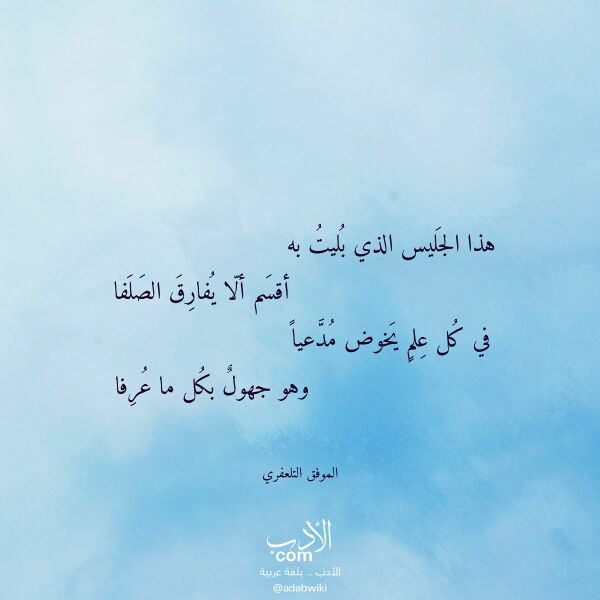 هذا الجَليس الذي بُليتُ به
أقسَم ألّا يُفارِقَ الصَلَفا
في كُل عِلمٍ يَخوض مُدَّعياً
وهو جهولٌ بكُل ما عُرِفا
الموفق التلعفري
الأدب
com
الأدب .. بلغة عربية
@adabwiki